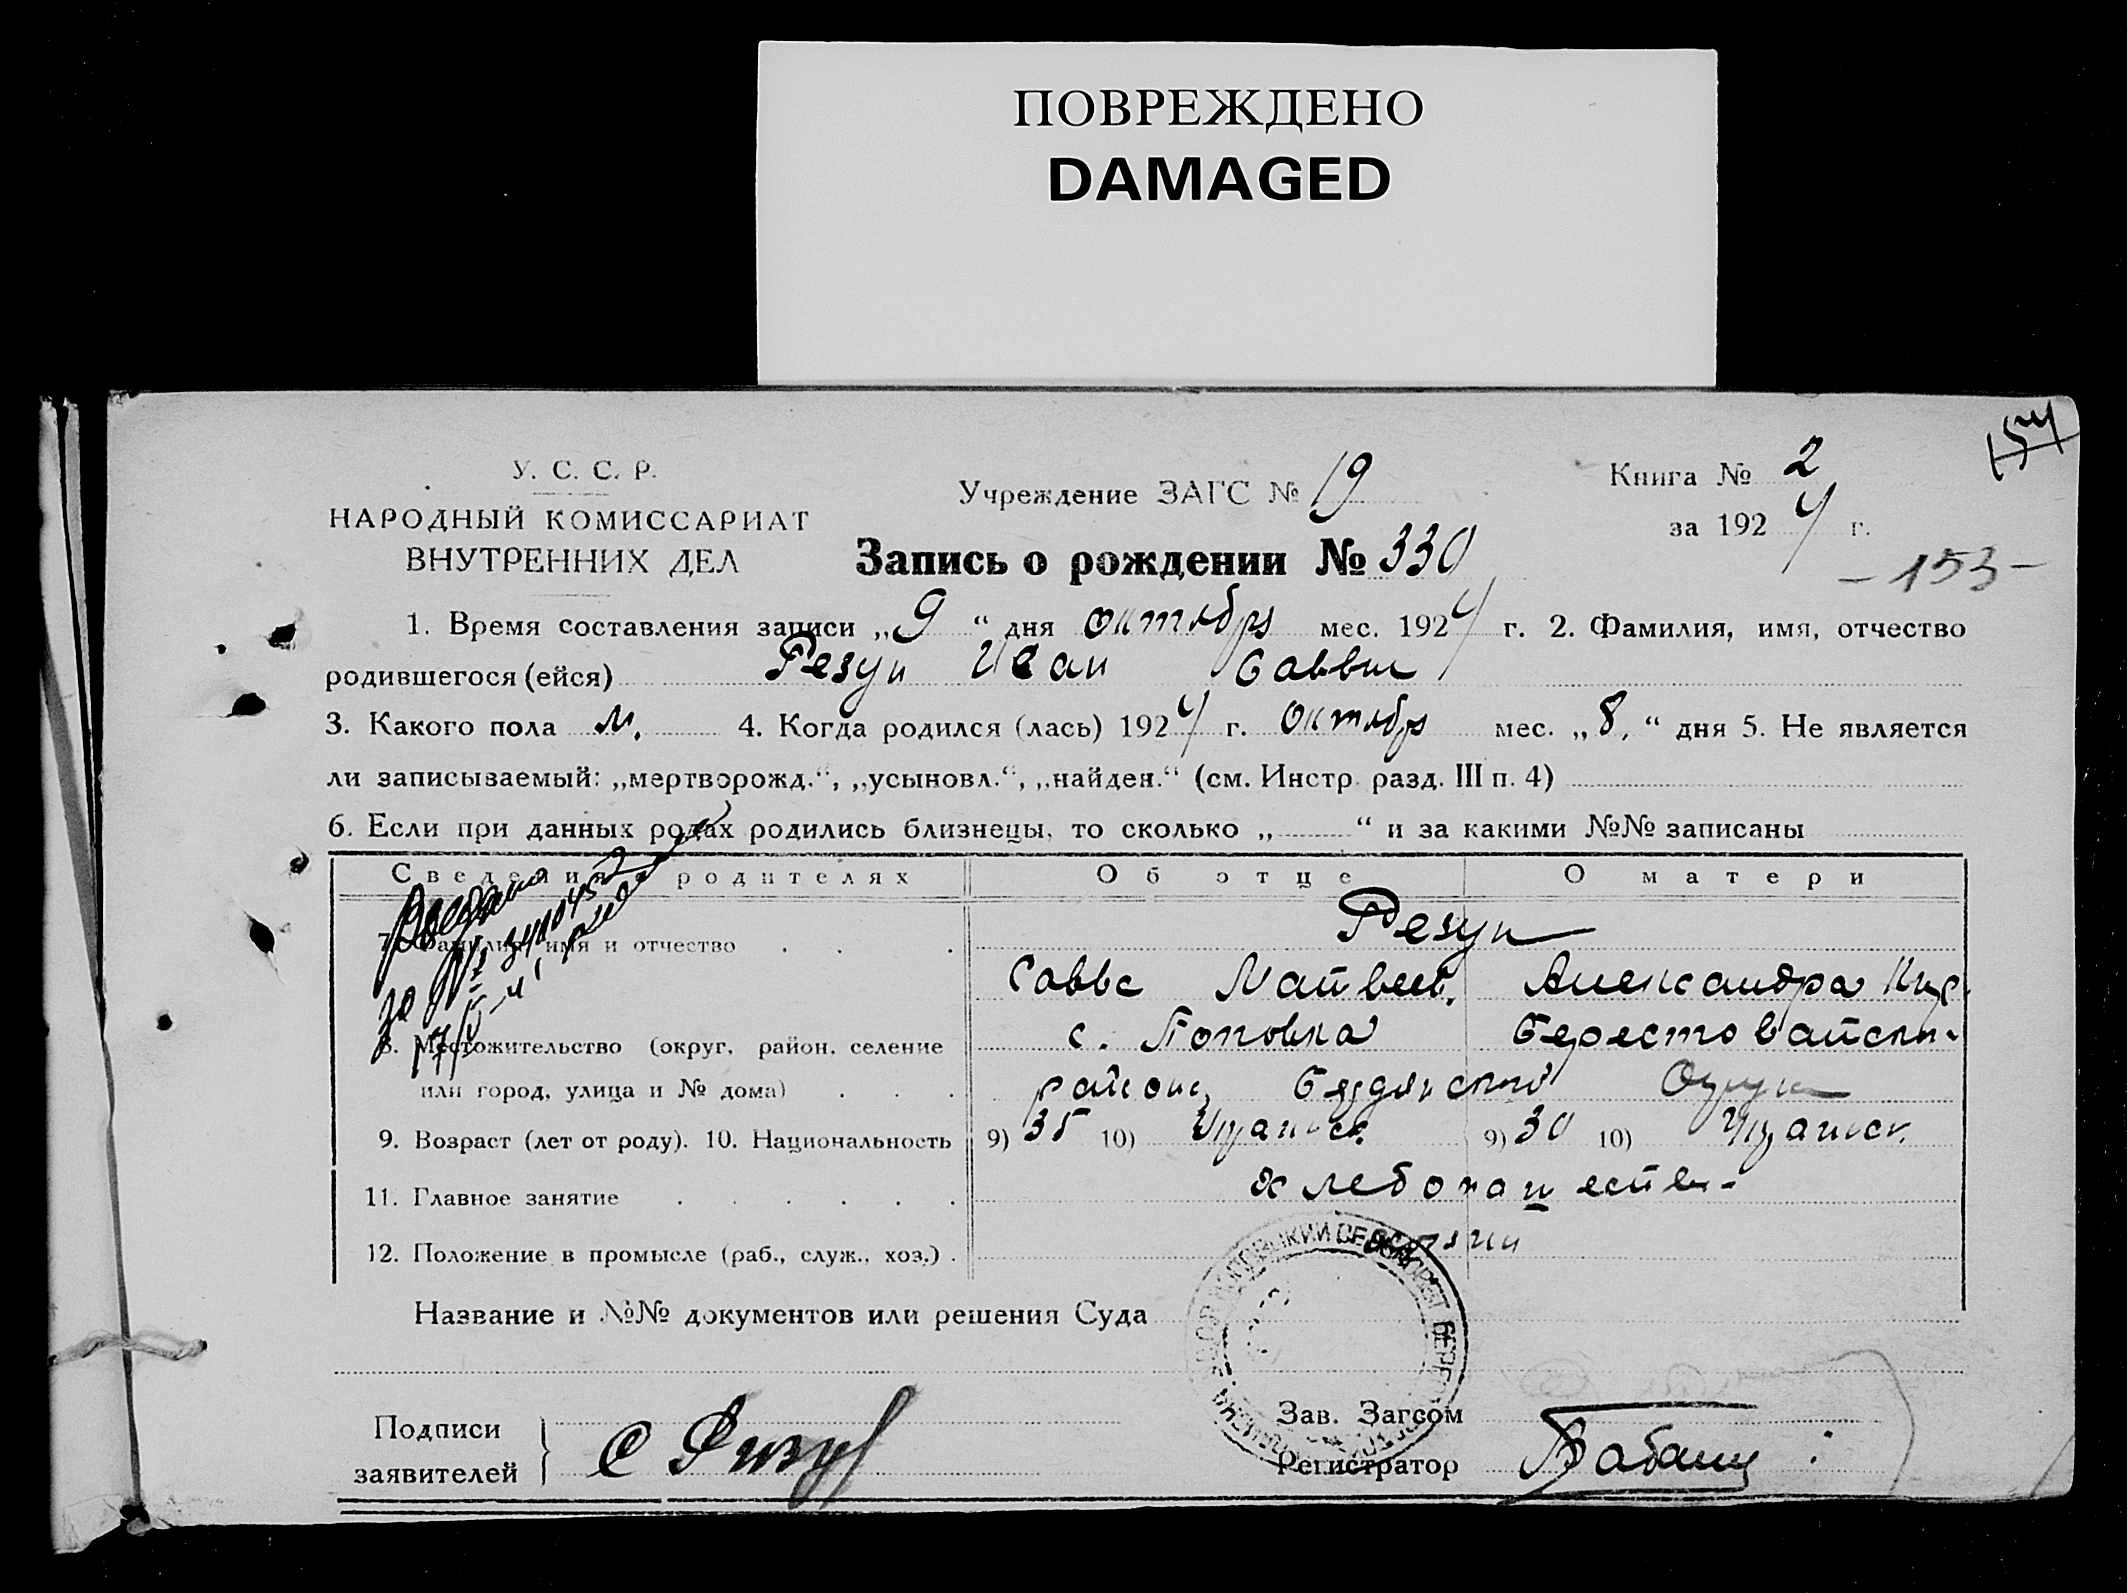 ПОВРЕЖДЕНО
DAMAGED
154
У. С. С. Р.
НАРОДНЫЙ КОМИССАРИАТ
ВНУТРЕННИХ ДЕЛ
Учреждение ЗАГС № 19
Книга № 2
за 1924 г.
Запись о рождении № 330
- 153 -
1. Время составления записи „9“ дня октября мес. 1924 г. 2. Фамилия, имя, отчество
родившегося (ейся) Резун Иван Саввич
3. Какого пола м. 4. Когда родился (лась) 1924 г. октябр мес. „8,“ дня 5. Не является
ли записываемый: „мертворожд.“, „усыновл.“, „найден.“ (см. Инстр. разд. III п. 4)
6. Если при данных родах родились близнецы, то сколько „ “ и за какими №№ записаны
Сведения о родителях Об отце О матери
7. Фамилия, имя и отчество Резун
Савва Матвеев. Александра
8. Местожительство (округ, район, селение с. Поповка Берестовайски-
или город, улица и № дома) район, Бердянский Округ
9. Возраст (лет от роду). 10. Национальность 9) 35 10) Украинск. 9) 30 10) Украинск.
11. Главное занятие хлебопашеств-
12. Положение в промысле (раб., служ., хоз.)
Название и №№ документов или решения Суда
Подписи
заявителей С Ризун
Зав. Загсом
Регистратор